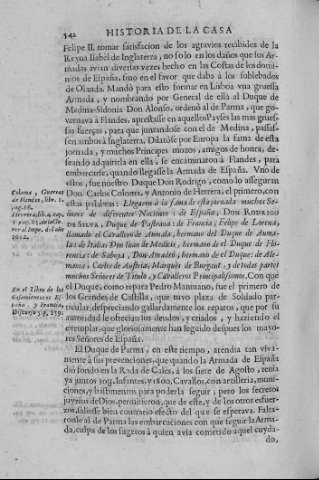 542 HISTORIA DE LA CASA
Felipe II. tomar satisfacion de los agravios recibidos de la
Reyna Isabel de Inglaterra, no solo en los daños que los Ar-
madas avian diversas vezes hecho en las Costas de los domi-
nios de España, sino en el favor que daba à los sublevados
de Olanda. Mandò para esto formar en Lisboa vna gruessa
Armada, y nombrando por General de ella al Duque de
Medina-Sidonia Don Alonso, ordenò al de Parma, que go-
vernava à Flandes, aprestasse en aquellos Payses las mas grues-
sas fuerças, para que juntandose con el de Medina, passas-
sen ambos à Inglaterra. Dilatòse por Europa la fama de esta
jornada, y muchos Principes mozos, amigos de honra, de-
seando adquirirla en ella, se encaminaron à Flandes, para
embarcarse, quando llegasse la Armada de España. Vno de
estos, fue nuestro Duque Don Rodrigo, como lo asseguran
Don Carlos Coloma, y Antonio de Herrera, el primero con
estas palabras: Llegaron à la fama de esta jornada muchos Se-
ñores de diferentes Naciones: de España, DON RODRIGO
DE SILVA, Duque de Pastrana: de Francia; Felipe de Lorena,
llamado el Cavallero de Aumala, hermano del Duque de Auma-
la: de Italia: Don Juan de Medicis, hermano de el Duque de Flo-
rencia: de Saboya, Don Amadeo, hermano de el Duque: de Ale-
mania: Carlos de Austria, Marquès de Burgaut, y de todas partes
muchos Señores de Titulo, y Cavalleros Principalissimos. Con que
el Duque, como repara Pedro Mantuano, fue el primero de
los Grandes de Castilla, que tuvo plaza de Soldado par-
ticular, despreciando gallardamente los reparos, que por su
autoridad le ofrecian los deudos, y criados, y haziendo el
exemplar, que gloriosamente han seguido despues los mayo-
res Señores de España.
El Duque de Parma, en este tiempo, atendia tan viva-
mente à sus prevenciones, que quando la Armada de España
diò fondo en la Rada de Calès, à los siete de Agosto, tenia
ya juntos Infantes, y 1800. Cavallos, con artilleria, muni-
ciones, y bastimentos para poderla seguir; pero los secretos
juyzios de Dios, permitieron, que de este, y de los otros esfuer-
zos, saliesse bien contrario efecto del que se esperava. Falta-
ron le al de Parma las embarcaciones con que seguir la Arma-
da, culpa de los sugetos à quien avia cometido aquel cuyda-
do,
Coloma, Guerras
de Flandes, lib. 1.
En el Libro de los
Casamientos de Es-
paña, y Francia,